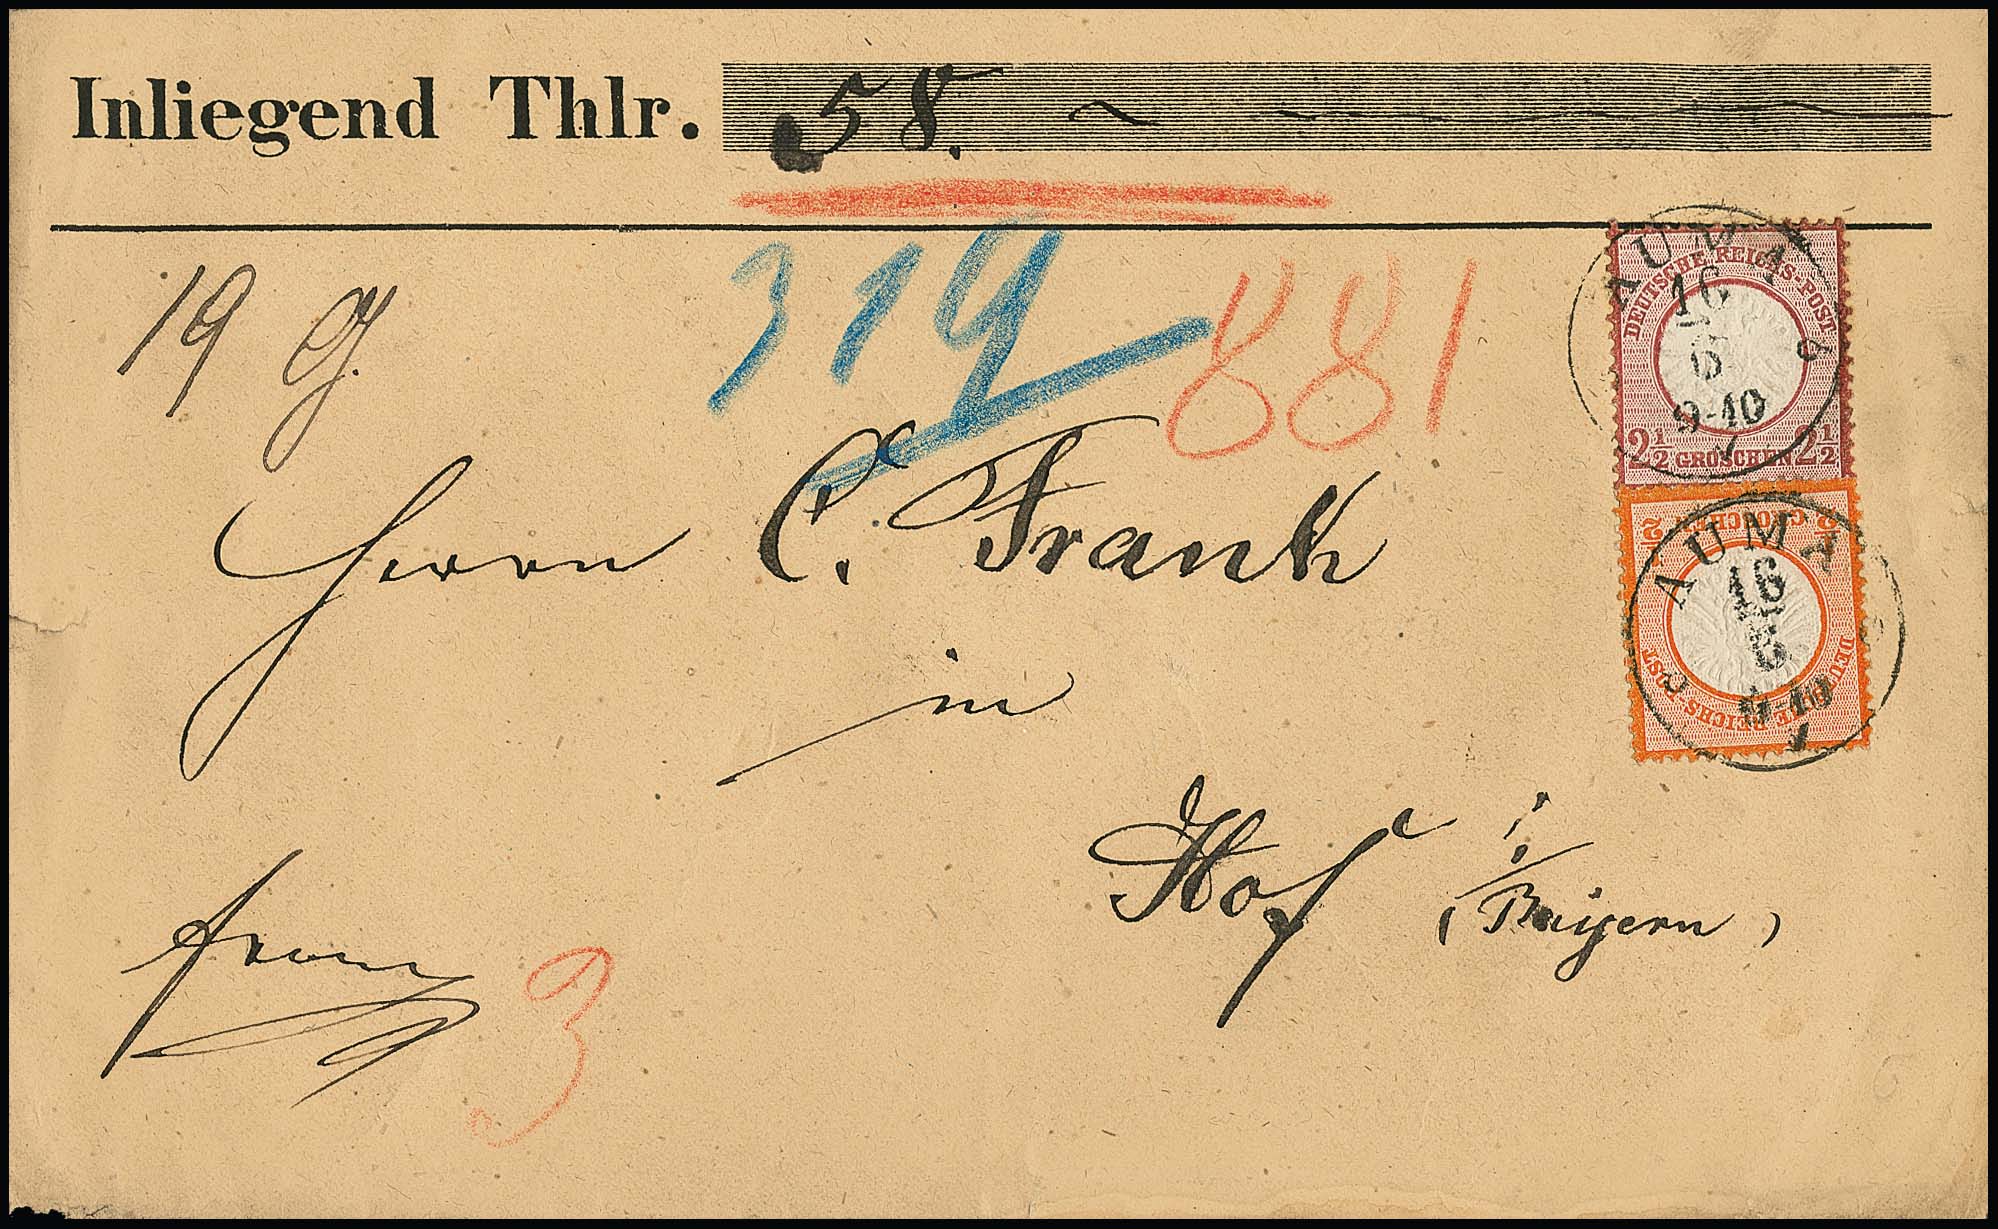 Inliegend Thlr. 58.
319
881
19 g.
DEUTSCHE REICHS-POST
2½ GROSCHEN 2½
AUMA
16
5
9-10
½ GROSCHEN ½
DEUTSCHE REICHS-POST
AUMA
16
5
9-10
Herrn C. Frank
in
Hof i/
(Baiyern)
franco
3